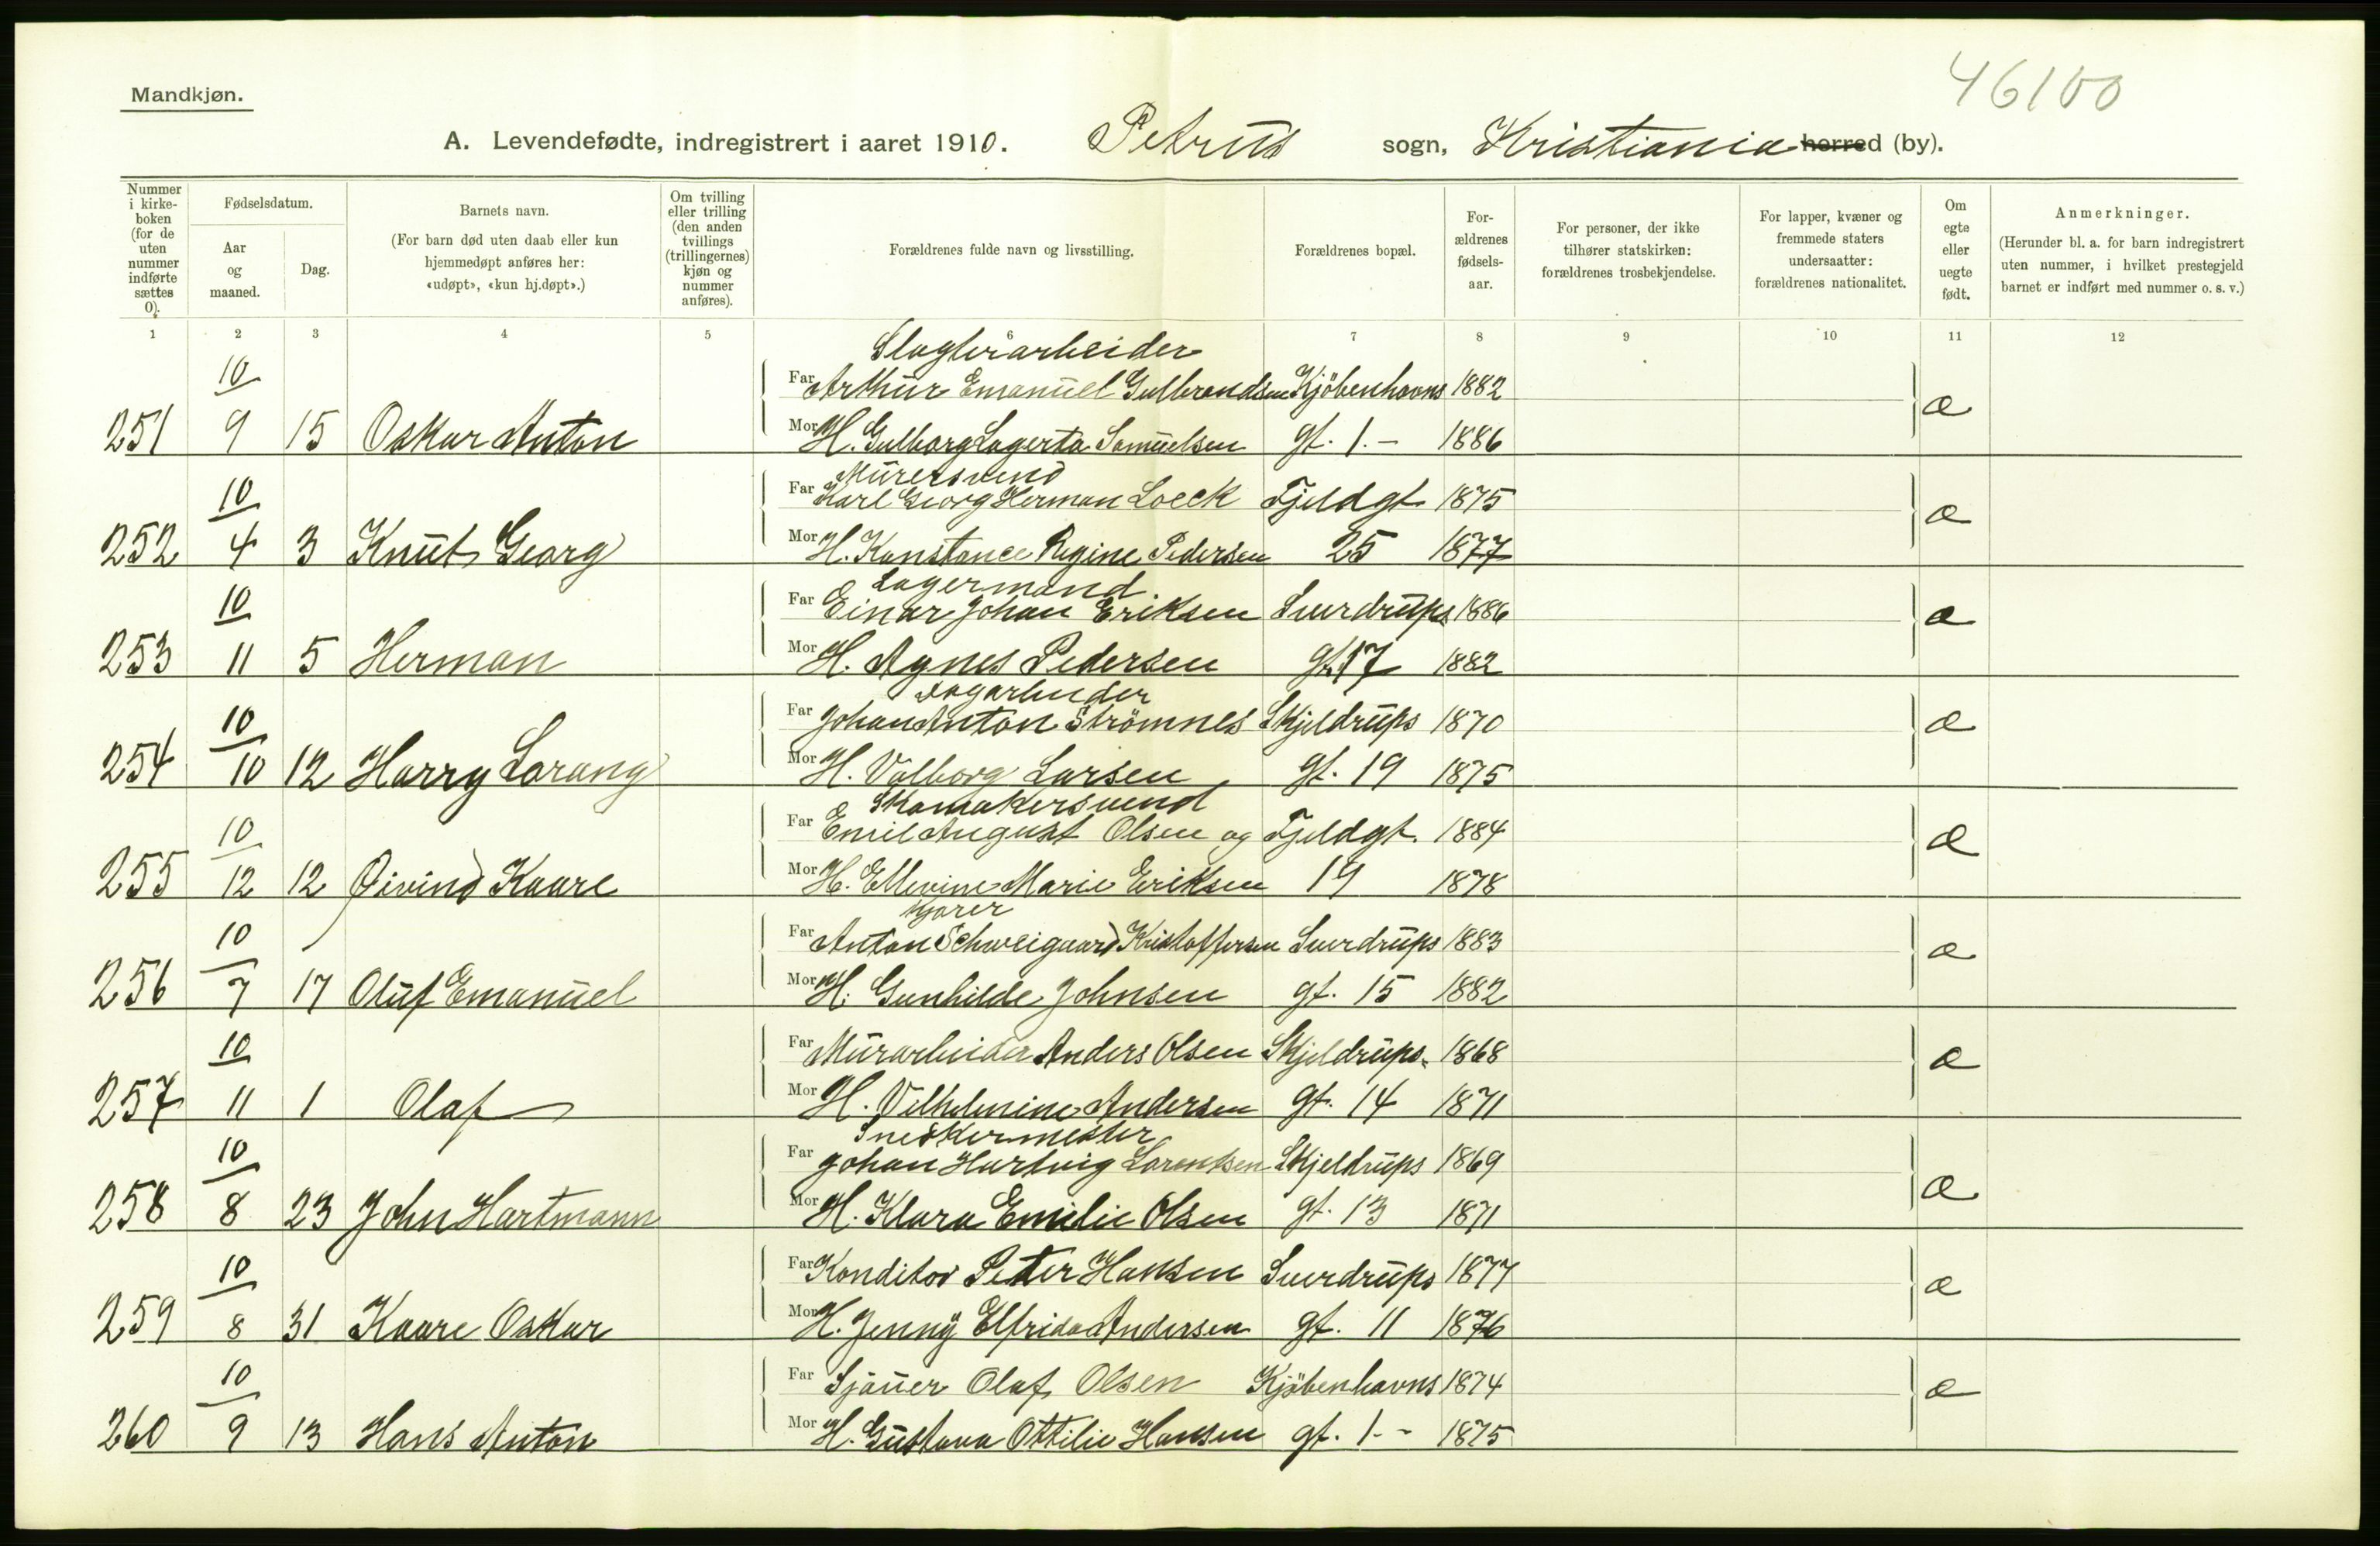 Mandkjøn.
46100
A. Levendefødte, indregistrert i aaret 1910. Petrus sogn, Kristiania herred (by).
Nummer i kirke-boken (for de uten nummer indførte sættes 0).
Fødselsdatum.
Aar og maaned.
Dag.
Barnets navn.
(For barn død uten daab eller kun hjemmedøpt anføres her: «udøpt», «kun hj.døpt».)
Om tvilling eller trilling (den anden tvillings (trillingernes) kjøn og nummer anføres).
Forældrenes fulde navn og livsstilling.
Forældrenes bopæl.
For-ældrenes fødsels-aar.
For personer, der ikke tilhører statskirken: forældrenes trosbekjendelse.
For lapper, kvæner og fremmede staters undersaatter: forældrenes nationalitet.
Om egte eller uegte født.
Anmerkninger.
(Herunder bl. a. for barn indregistrert uten nummer, i hvilket prestegjeld barnet er indført med nummer o. s. v.)
1 2 3 4 5 6 7 8 9 10 11 12
Slagteriarbeider
10 Far Arthur Emanuel Gulbrandsen Kjöbenhavns 1882 æ
251 9 15 Oskar Anton Mor H. Gulborg Lagerta Samuelsen gt. 1.- 1886
Murersvend
10 Far Karl Georg Herman Loeck Fjeldgt 1875 æ
252 4 3 Knut Georg Mor H. Konstance Regine Pedersen 25 1877
Lagermand
10 Far Einar Johan Eriksen Sverdrups 1886 æ
253 11 5 Herman Mor H. Agnes Pedersen gt. 17 1882
Dagarbeider
10 Far Johan Anton Strömnes Skjeldrups 1870 æ
254 10 12 Harry Lorang Mor H. Valborg Larsen gt. 19 1875
Skomakersvend
10 Far Emil August Olsen og Fjeldgt. 1884 æ
255 12 12 Øivind Kaare Mor H. Ellevine Marie Eriksen 19 1878
Kjører
10 Far Anton Schweigaard Kristoffersen Sverdrups 1883 æ
256 7 17 Oluf Emanuel Mor H. Gunhilde Johnsen gt. 15 1882
10 Far Murarbeider Anders Olsen Skjeldrups. 1868 æ
257 11 1 Olaf Mor H. Vilhelmine Andersen gt. 14 1871
Snedkermester
10 Far Johan Hartvig Lorentsen Skjeldrups 1869 æ
258 8 23 John Hartmann Mor H. Klara Emilie Olsen gt. 13 1871
10 Far Konditor Peter Hansen Sverdrups 1877 æ
259 8 31 Kaare Oskar Mor H. Jenny Elfrida Andersen gt. 11 1876
10 Far Sjauer Olaf Olsen Kjöbenhavns 1874 æ
260 9 13 Hans Anton Mor H. Gustava Ottilie Hansen gt. 1.- 1875